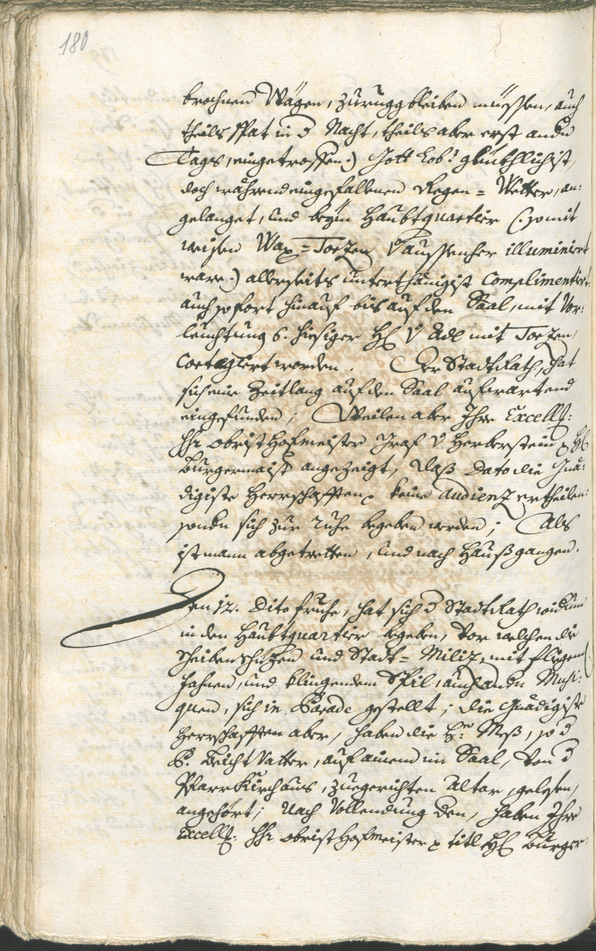 180
brochnen Wägen, zurugg bleiben müssen, auch
theils spat in d Nacht, theils aber erst andn
Tags, eingetroffen:) Gott Lob! glückhlichist,
doch während eingefallnen Regen= Wetter, an:
gelanget, und beym Haubtquartier (:so mit
weissen Wax=Torzen v aussenher illuminiert
ware:) allerseits unterthänigist Complimentiert,
auch sofort hinauf bis auf den Saal, mit Vor:
leuchtung 6. hiesiger H v Adl mit Torzen,
Cortegiert worden. Der StadtRath, hat
sich eine Zeitlang auf den Saal aufwartend
eingefunden; Weilen aber Ihre Excell:
Hr obrist Hofmeister Graf v Herberstein H
Burgermaist angezeigt, dass dato die Gnä:
digiste Herrschafften keine audienz ertheilen,
sondn sich zur Ruhe begeben werden; Als
ist mann abgetretten, und nach Hauss gangen.
Den 12. Dito fruhe, hat sich d StadtRath widum
in den Haubtquartier begeben, vor welchen die
Scheibenschüzen und Stadt=Miliz, mit fliegend
Fahnen, und klingenden Spil, auch andn Musi:
quen, sich in Parade gestellt; die Gnädigiste
Herrschafften aber, haben die H: Mess, so d
P. Beicht Vatter, auf ainem im Saal, von d
Pfarrkirch aus, zuegerichten Altar, gelesen,
angehört; Nach Vollendung den, haben Ihre
Excell: Hr obrist Hofmeister titl H Burger: